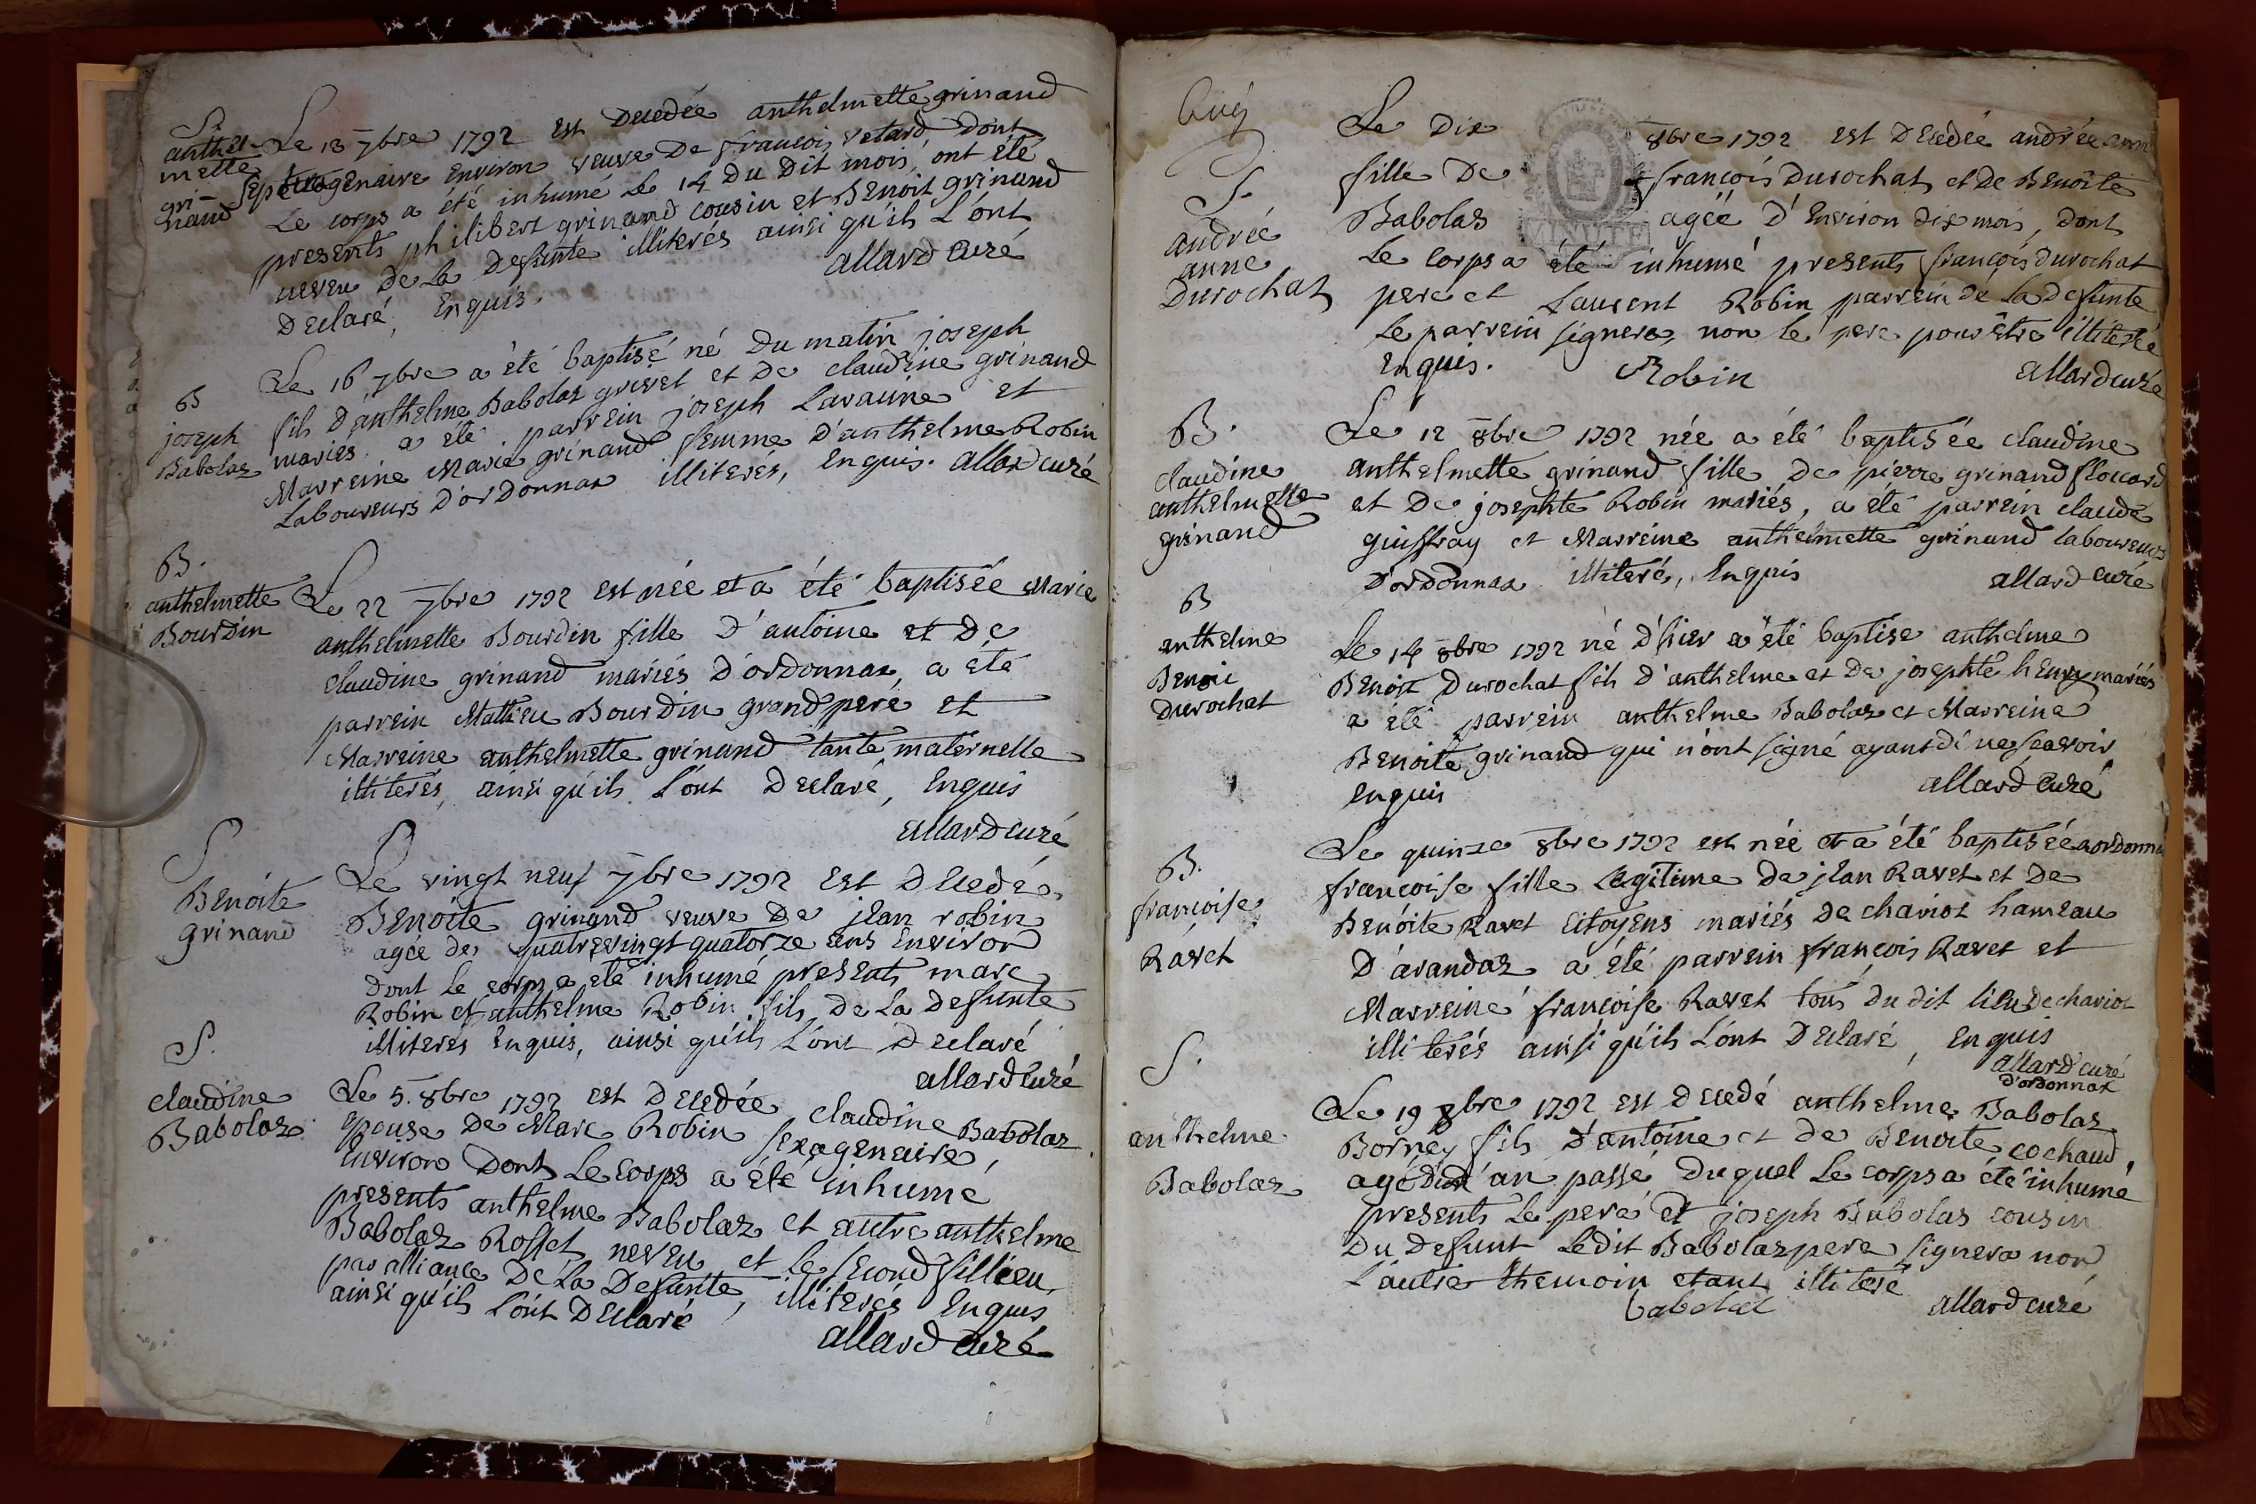 S.
anthel-
mette
gri-
nand
Le 13 7bre 1792 est Decedée anthelmette grinand
septuagenaire Environ veuve De francois vetard Dont
Le corps a été inhumé Le 14 Du Dit mois, ont été
presents philibert grinand cousin et Benoit grinand
neveu De La Defunte illiterés ainsi qu'ils L'ont
Declaré, Enquis.
allard curé
B
joseph
Babolaz
Le 16 7bre a été baptisé né Du matin joseph
fils D'anthelme Babolaz grivet et De claudine grinand
mariés, a été parrein joseph Laraine et
Marreine Marie grinand femme D'anthelme Robin
Laboureurs D'orDonnaz illiterés, Enquis. allard curé
B.
anthelmette
Bourdin
Le 22 7bre 1792 est née et a été baptisée Marie
anthelmette Bourdin fille D'antoine et De
claudine grinand mariés D'orDonnaz, a été
parrein Mathieu Bourdin grand pere et
Marreine anthelmette grinand tante maternelle
illiterés, ainsi qu'ils L'ont Declaré, Enquis
allard curé
S.
Benoite
grinand
Le vingt neuf 7bre 1792 est Decedée
Benoite grinand veuve De jean robin
agée de quatrevingt quatorze ans Environ
Dont Le corps a eté inhumé presents marc
Robin et anthelme Robin fils De La Defunte
illiterés Enquis, ainsi qu'ils L'ont Declaré
allard curé
S.
claudine
Babolaz
Le 5. 8bre 1792 est Decedée claudine Babolaz
Epouse De Marc Robin sexagenaire
Environ Dont Le corps a été inhumé,
presents anthelme Babolaz et autre anthelme
Babolaz Rosset neveu et Le second filleu
par alliance De La Defunte, illiterés Enquis
ainsi qu'ils L'ont Declaré
allard curé
S.
andrée
anne
Durochat
MINUTE
Le Dix 8bre 1792 est Decedée andrée ann
fille De françois Durochat et De Benoite
Babolaz agée D'Environ Dix mois, Dont
Le corps a été inhumé presents françois Durochat
pere et Laurent Robin parrein De La defunte
Le parrein signera, non le pere pour être illiteré
Enquis.
Robin
allard curé
B.
claudine
anthelmette
grinand
Le 12 8bre 1792 née a été baptisée claudine
anthelmette grinand fille De pierre grinand floccard
et De josephte Robin mariés, a été parrein claude
guiffray et Marreine anthelmette grinand laboureurs
D'orDonnaz illiteré, Enquis
allard curé
B
anthelme
Benoi
durochat
Le 14 8bre 1792 né D'hier a été baptise anthelme
Benoit Durochat fils D'anthelme et De josephte henry mariés
a été parrein anthelme Babolaz et Marreine
Benoite grinand qui n'ont signé ayant di ne scavoir
Enquis
allard curé
B.
françoise
Ravet
Le quinze 8bre 1792 est née et a été baptisée a ordonna
françoise fille Legitime De jean Ravet et De
Benoite Ravet Citoyens mariés De chariot hameau
D'arandaz a été parrein françois Ravet et
Marreine françoise Ravet tous Du dit lieu De chariot
illiterés ainsi qu'ils L'ont Declaré, Enquis
allard curé
D'ordonnaz
S.
anthelme
Babolaz
Le 19 8bre 1792 est Decedé anthelme Babolaz
Borney fils D'antoine et De Benoite cochaud,
agé d'un an passé, Duquel Le corps a été inhumé
presents Le pere et joseph Babolas cousin
Du Defunt Ledit Babolaz pere signera non
L'autre themoin etant illiteré
babolat
allard curé